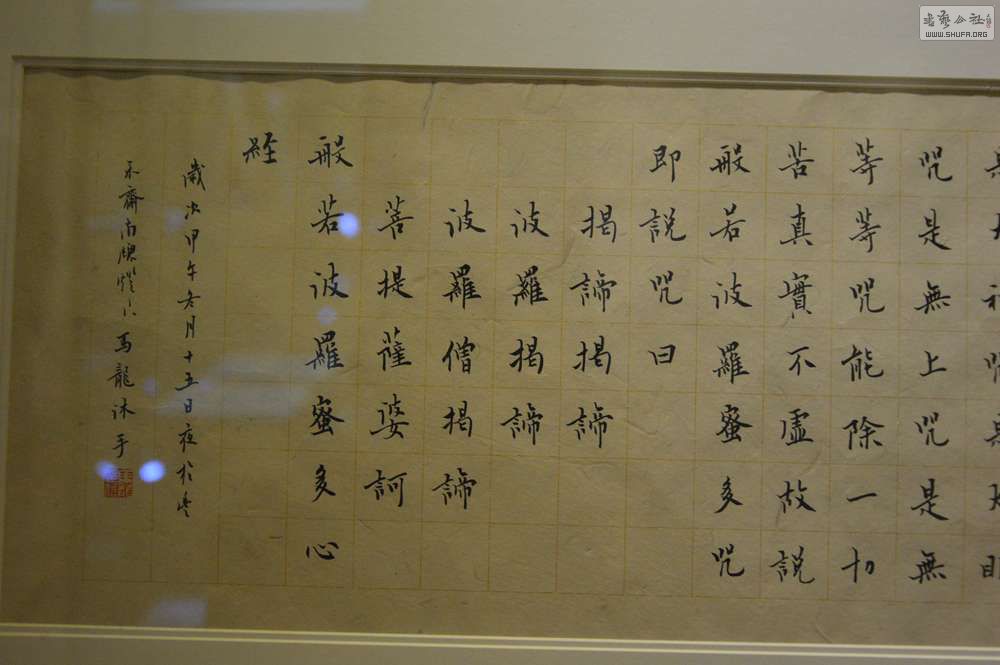 咒是無上咒是無
等等咒能除一切
苦真實不虛故說
般若波羅蜜多咒
即說咒曰
揭諦揭諦
波羅揭諦
波羅僧揭諦
菩提薩婆訶
般若波羅蜜多心
經
歲次甲午冬月十五日夜於
齋南牖燈下馬龍沐手
书艺公社
WWW.SHUFA.ORG